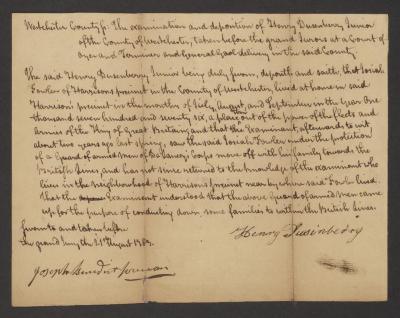 Westchester County ss. The examination and deposition of Henry Dusenberry Junior
of the County of Westchester, taken before the grand Jurors at a Court of
Oyer and Terminer and General Gaol delivery in the said County.
The said Henry Dusenberry Junior being duly sworn, deposeth and saith, that Josiah
Fowler of Harrisons precinct in the County of Westchester, lived at home in said
Harrisons precinct in the months of July, August, and September in the year One
thousand seven hundred and seventy six, a place out of the power of the fleets and
armies of the King of Great Britain, and that this Examinant, afterwards to wit
about two years ago last spring, saw the said Josiah Fowler under the protection
of a Guard of armed men of Delancey's Corps move off with his family towards the
British lines, and has not since returned to the knowledge of the examinant who
lives in the neighbourhood of Harrisons precinct near by where said Fowler lived.
That the Examinant understood that the above Guard of armed men came
up for the purpose of conducting down some families to within the British lines.
Sworn to and taken before
the grand Jury the 21st August 1783.
Henry Dusinberry
Joseph Benedict foreman